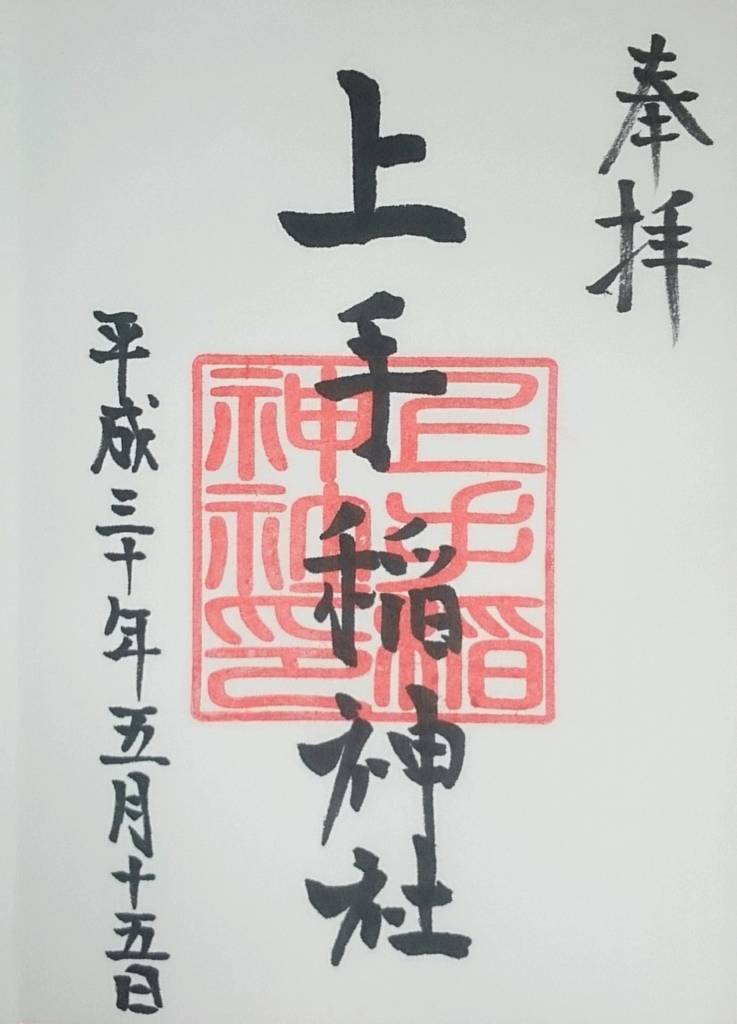 奉拝
上手稲神社
上手稲
神社印
平成三十年五月十五日